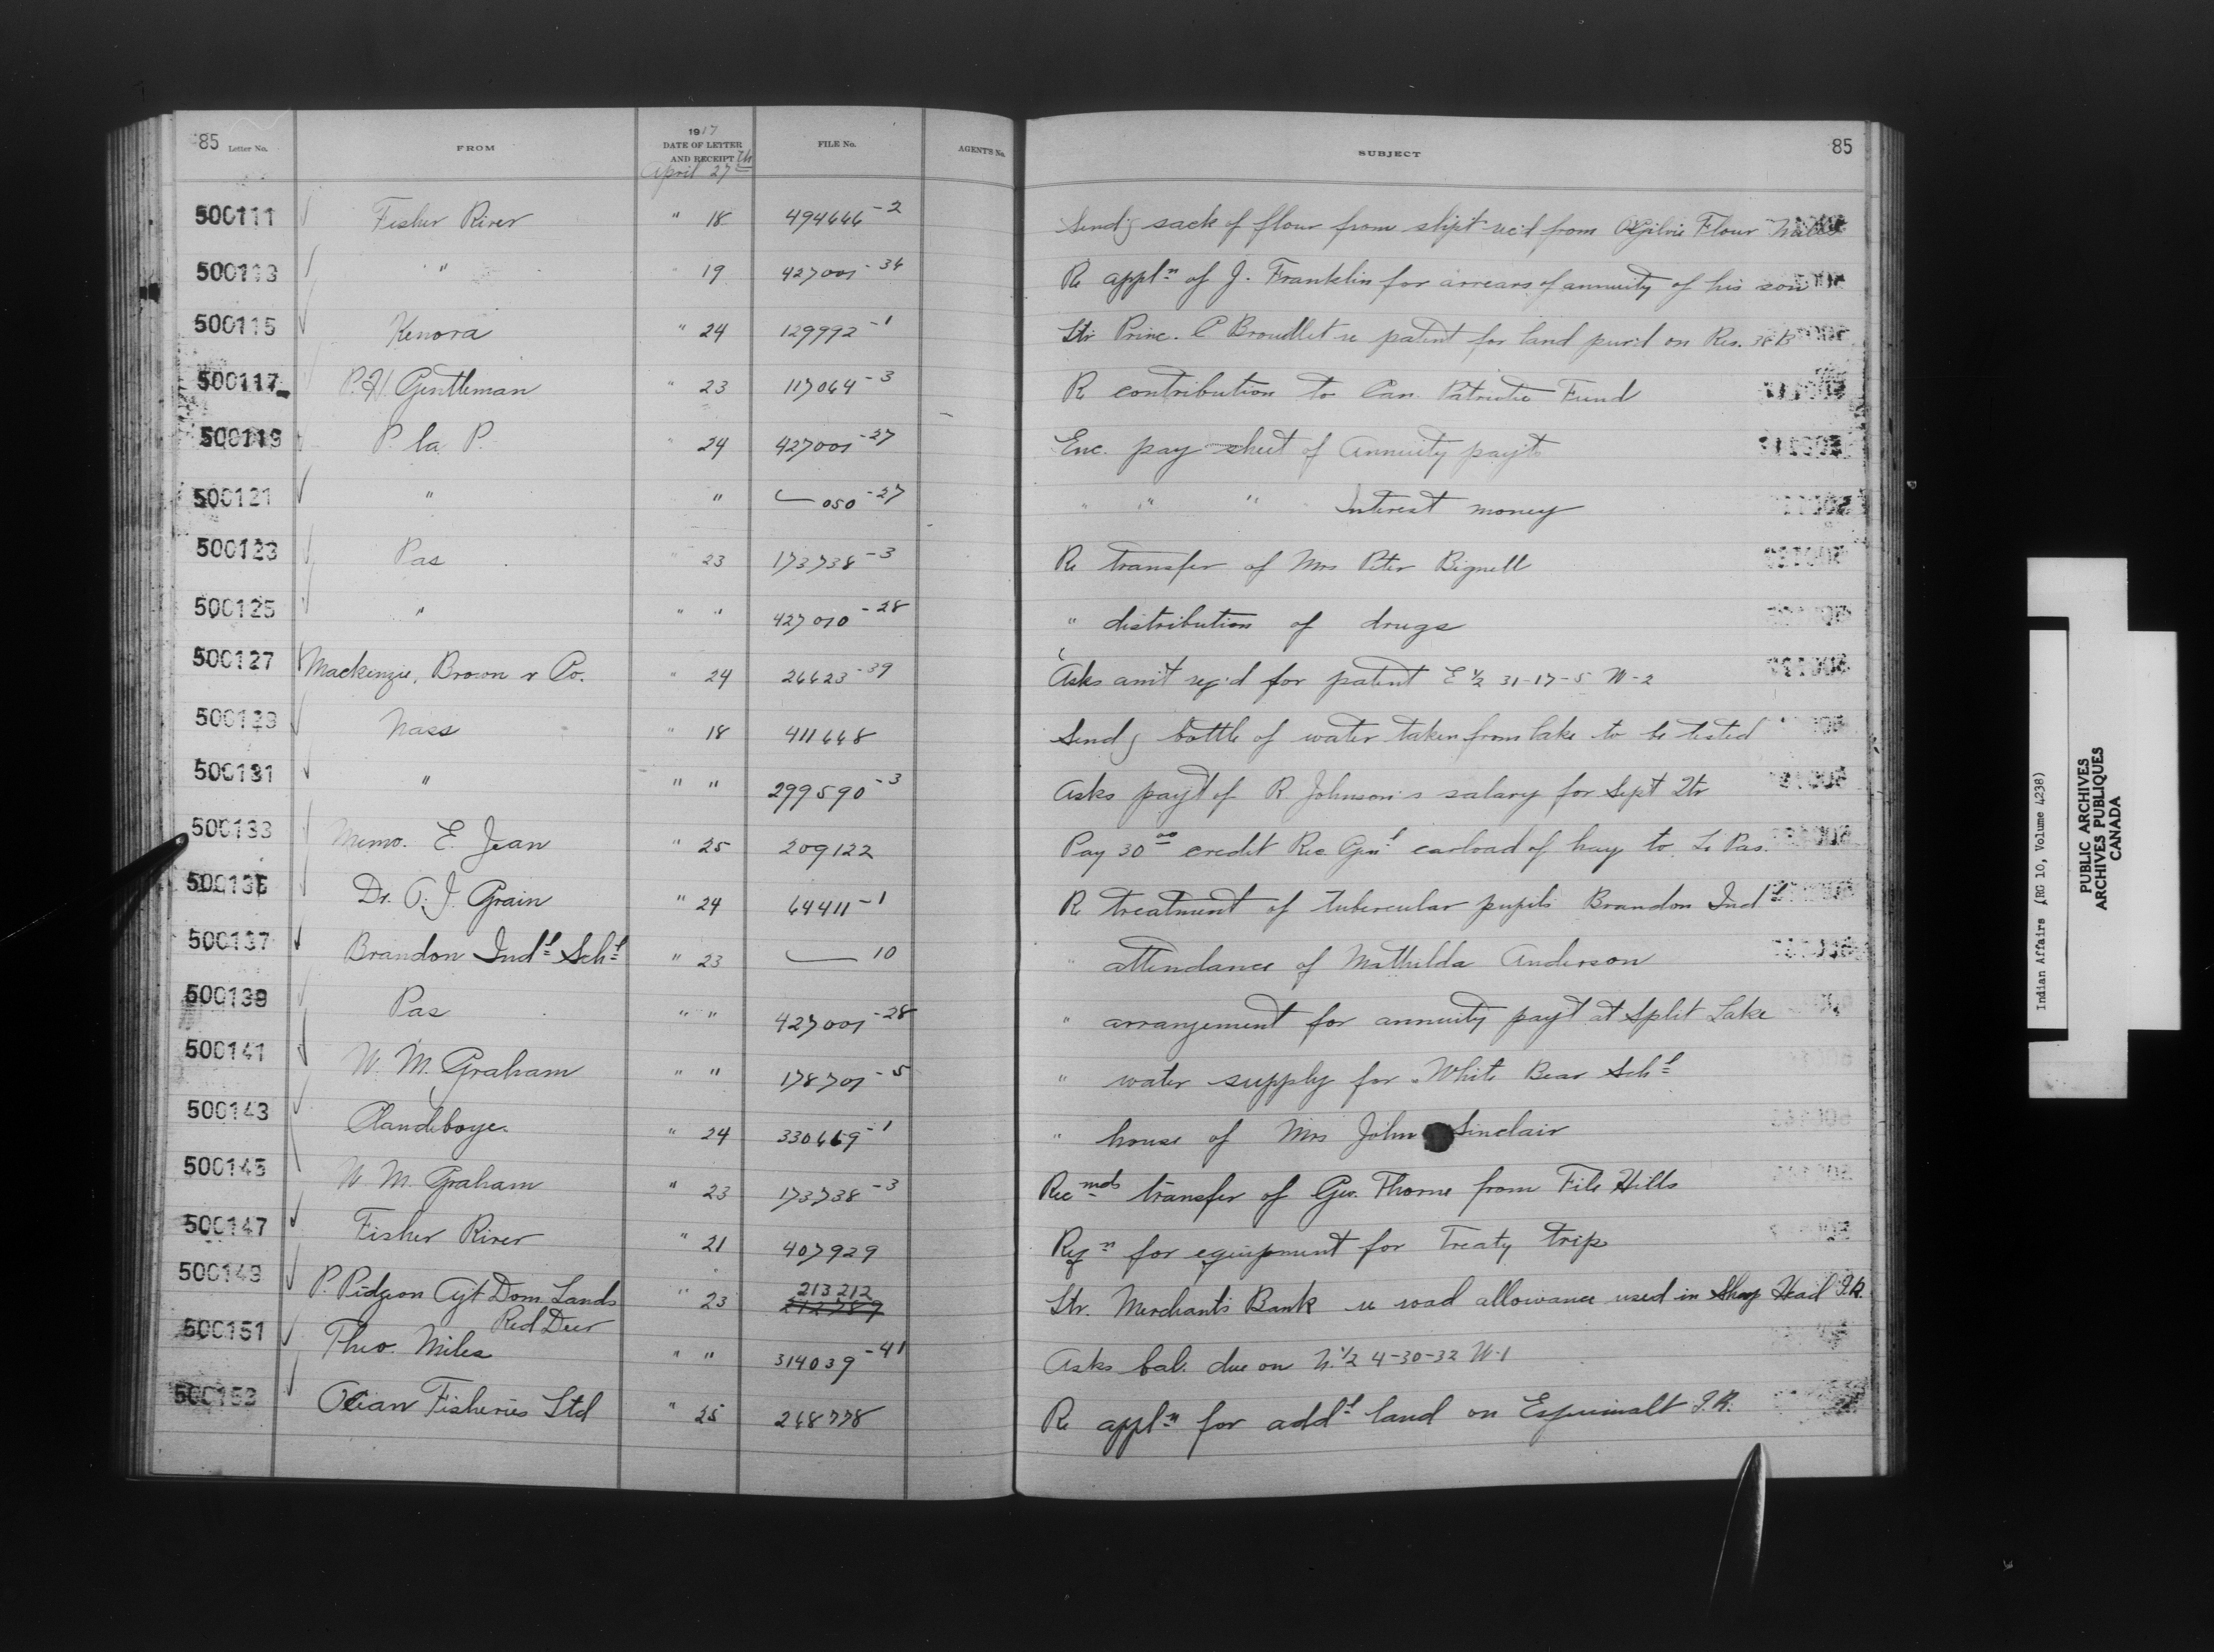 85 Letter No. FROM 1917 DATE OF LETTER AND RECEIPT FILE No. AGENT'S No. SUBJECT 85
April 27th
500111 Fisher River " 18 494646-2 Sendg sack of flour from shipt rec'd from Ogilvie Flour Mills
500113 " " 19 427001-34 Re appln of J. Franklin for arrears of annuity of his son
500115 Kenora " 24 129992-1 Ltr Princ. C Broudlet re patent for land pur'd on Res. 38 B
500117 P.H. Gentleman " 23 117064-3 R contribution to Can. Patriotic Fund
500119 P. la P. " 24 427001-27 Enc. pay sheet of Annuity payts
500121 " " 050-27 " " " Interest money
500123 Pas " 23 173738-3 Re transfer of Mrs Peter Bignell
500125 " " " 427010-28 " distribution of drugs
500127 Mackenzie, Brown & Co. " 24 26623-39 Asks amt req'd for patent E 1/2 31-17-5 W-2
500129 Nass " 18 411648 Sendg bottle of water taken from lake to be tested
500131 " " " 299590-3 Asks payt of R Johnson's salary for Sept Qtr
500133 Memo. E. Jean " 25 209122 Pay 30 00 credit Rec. Genl carload of hay to Le Pas.
500135 Dr. O.J. Grain " 24 64411-1 R treatment of tubercular pupils Brandon Indl
500137 Brandon Indl Schl " 23 10 " attendance of Mathilda Anderson
500139 Pas " " 427001-28 " arrangement for annuity payt at Split Lake
500141 W. M. Graham " " 178701-5 " water supply for White Bear Schl
500143 Clandeboye. " 24 330469-1 " house of Mrs John Sinclair
500145 W. M. Graham " 23 173738-3 Recmds transfer of Geo. Thorne from File Hills
500147 Fisher River " 21 407929 Reqn for equipment for Treaty trip
500149 P. Pidgeon Agt Dom. Lands " 23 213212 Ltr. Merchants Bank re road allowance used in Sharp Head I.R.
Red Deer 212789
500151 Theo. Miles " " 314039-41 Asks bal. due on N. 1/2 4-30-32 W-1
500153 Ocean Fisheries Ltd " 25 248778 Re appln for addl land on Esquimalt I.R.
Indian Affairs (RG 10, Volume 4238)
PUBLIC ARCHIVES
ARCHIVES PUBLIQUES
CANADA